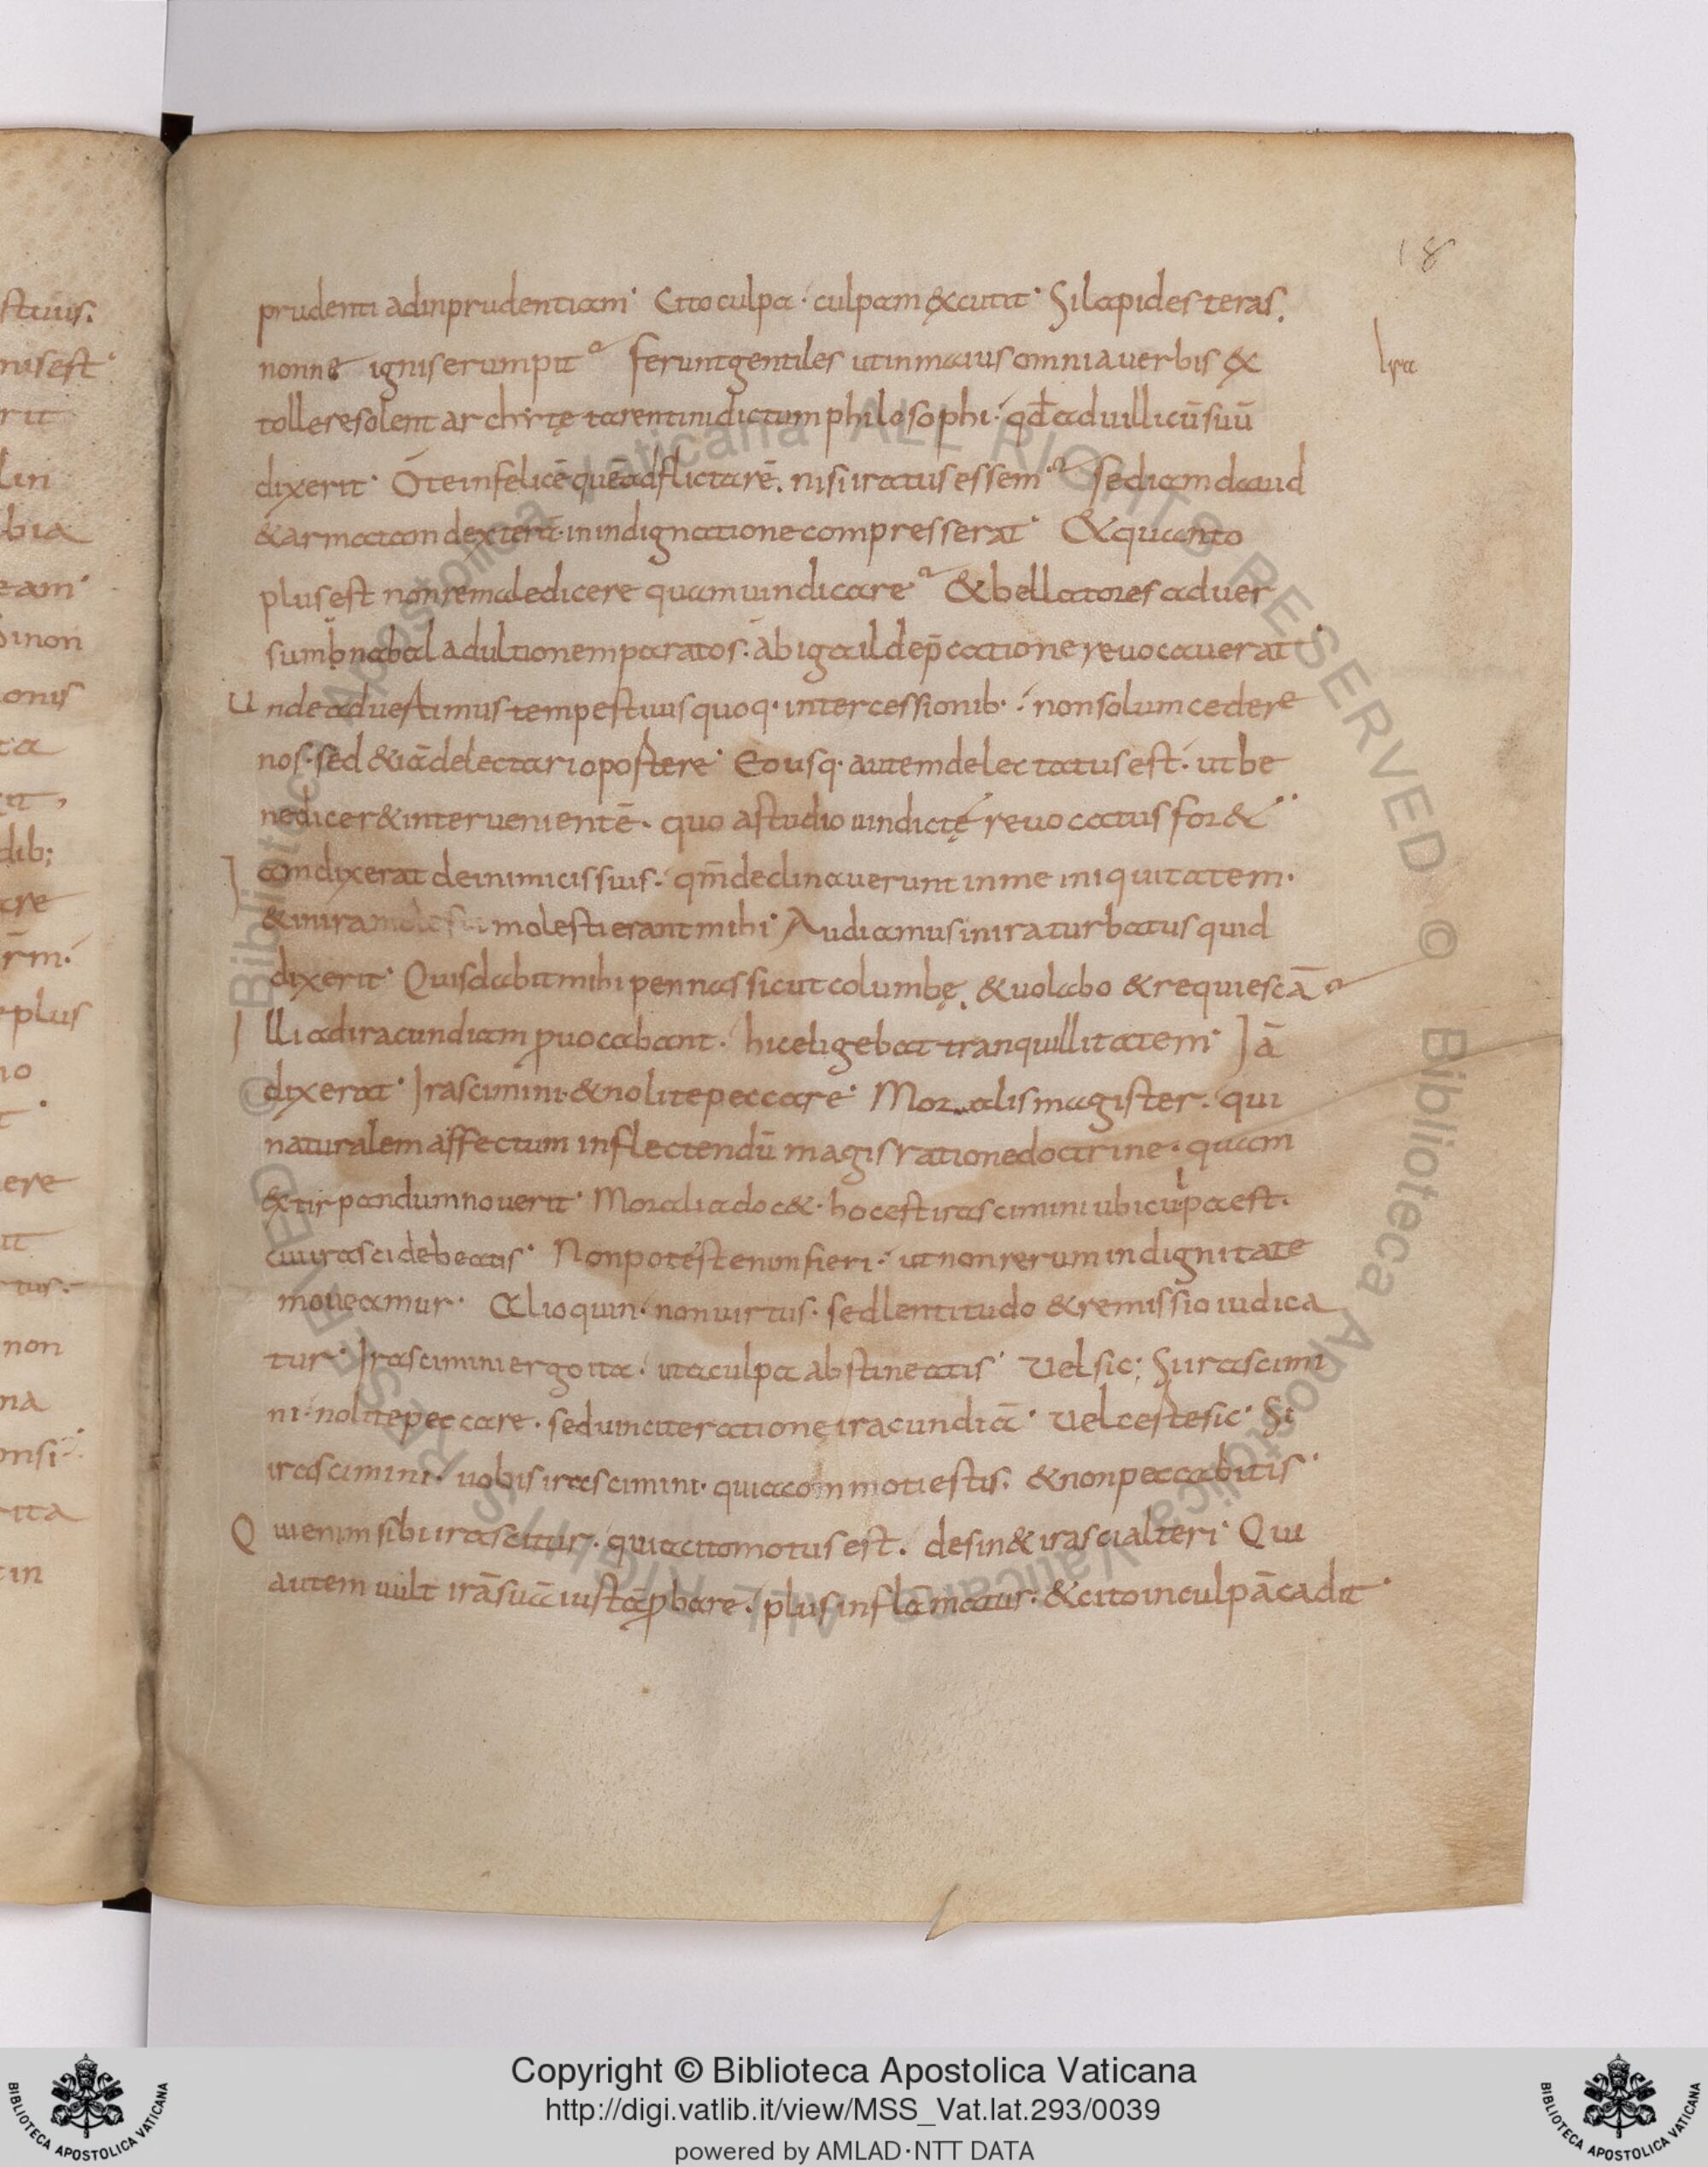 18
prudenti adinprudentiam· Cito culpa· culpam excutit· Si lapides teras.
nonne ignis erumpit? ferunt gentiles ut in maius omnia uerbis ex
ira
tollere solent archytę tarentini dictum philosophi· qđ ad uillicū suū
dixerit· O te infelicē quē adflictarē. nisi iratus essem? sed iam dauid
& armatam dexterā· in indignatione compresserat· Et quanto
plus est non remaledicere quam uindicare? & bellatores aduer
sum nabal ad ultionem paratos· abigail dep̄catione reuocauerat·
Unde aduertimus tempestiuis quoq· intercessionib· non solum cedere
nos· sed & iā delectari oportere· Eousq· autem delectatus est· ut be
nediceret interuenientē· quo a studio uindictę reuocatus foret·
Iam dixerat de inimicis suis· qm̄ declinauerunt in me iniquitatem·
& in ira molesti erant mihi· Audiamus in ira turbatus quid
dixerit· Quis dabit mihi pennas sicut columbę. & uolabo & requiescā?
Illi ad iracundiam ꝓuocabant· hic eligebat tranquillitatem· Iā
dixerat· Irascimini· & nolite peccare· Moralis magister· qui
naturalem affectum inflectendū magis ratione doctrine· quam
extirpandum nouerit· Moralia docet· hoc est irascimini ubi culpa est·
cui irasci debeatis· Non potest enim fieri· ut non rerum indignitate
moueamur· Alioquin· non uirtus· sed lentitudo & remissio iudica
tur· Irascimini ergo ita· ut a culpa abstineatis· Vel sic; Si irascimi
ni· nolite peccare· sed uincite ratione iracundiā· Vel certe sic· Si
irascimini· uobis irascimini· quia commoti estis· & non peccabitis·
Qui enim sibi irascitur· quia cito motus est· desinet irasci alteri· Qui
autem uult irā suā iustā ꝓbare· plus inflāmatur· & cito in culpā cadit·
Copyright © Biblioteca Apostolica Vaticana
http://digi.vatlib.it/view/MSS_Vat.lat.293/0039
powered by AMLAD·NTT DATA